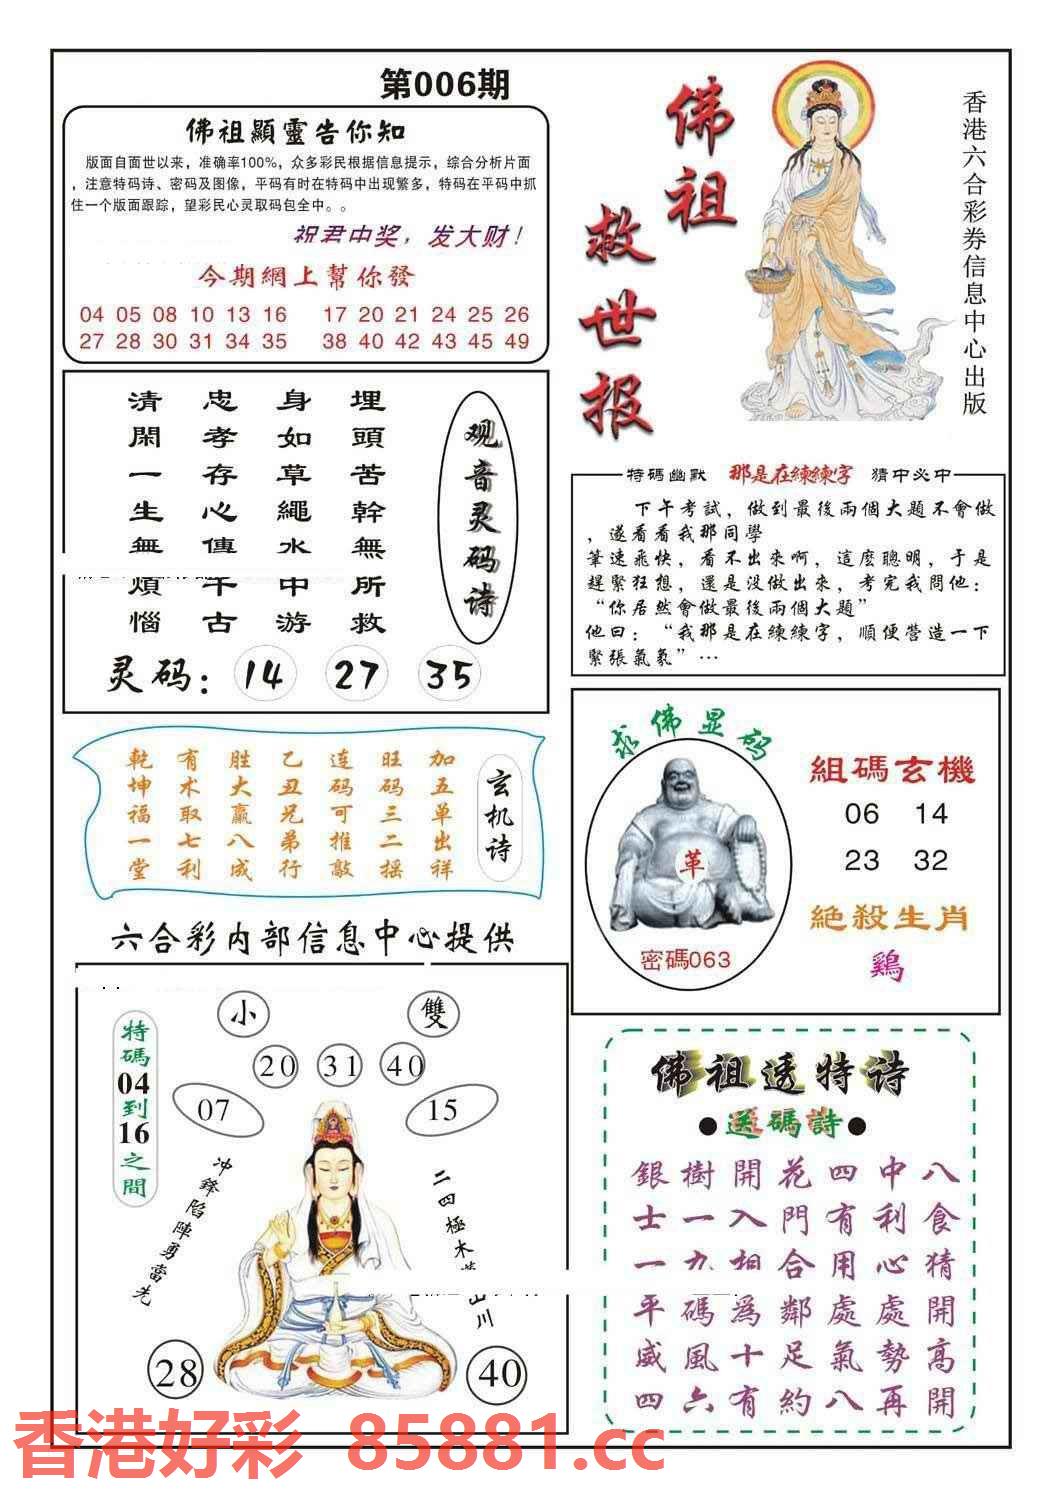 第006期
佛祖顯靈告你知
版面自面世以来，准确率100%，众多彩民根据信息提示，综合分析片面
，注意特码诗、密码及图像，平码有时在特码中出现繁多，特码在平码中抓
住一个版面跟踪，望彩民心灵取码包全中。。
祝君中奖，发大财！
今期網上幫你發
04 05 08 10 13 16 17 20 21 24 25 26
27 28 30 31 34 35 38 40 42 43 45 49
佛祖
救世报
香港六合彩券信息中心出版
观音灵码诗
埋頭苦幹無所救
身如草繩水中游
忠孝存心傳千古
清閑一生無煩惱
灵码：14 27 35
特碼幽默 那是在練練字 猜中必中
下午考試，做到最後兩個大題不會做
，遂看看我那同學
筆速飛快，看不出來啊，這麽聰明，于是
趕緊狂想，還是没做出來，考完我問他：
“你居然會做最後兩個大題”
他曰：“我那是在練練字，順便營造一下
緊張氣氛”…
玄机诗
加五单出祥
旺码三二摇
连码可推敲
乙丑兄弟行
胜大赢八成
有术取七利
乾坤福一堂
求佛显码
革
密碼063
組碼玄機
06 14
23 32
絶殺生肖
鷄
六合彩内部信息中心提供
特碼04到16之間
小 雙
20 31 40
07 15
冲鋒陷陣勇當先
二四極木 山川
28 40
佛祖透特诗
●送碼詩●
八食猜開高開
中利心處勢再
四有用處氣八
花門合鄰足約
開入相爲十有
樹一九碼風六
銀士一平威四
香港好彩 85881.cc